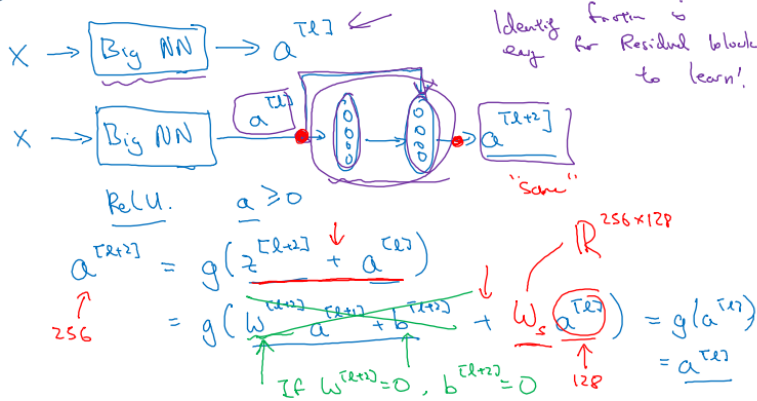 X → Big NN → a^[l]
Identity function is
easy for Residual block
to learn!
X → Big NN → a^[l] → a^[l+2]
"same"
ReLU. a ≥ 0
ℝ^256×128
a^[l+2] = g(z^[l+2] + a^[l])
256
= g(W^[l+2] a^[l+1] + b^[l+2] + W_s a^[l]) = g(a^[l])
= a^[l]
If W^[l+2] = 0, b^[l+2] = 0
128